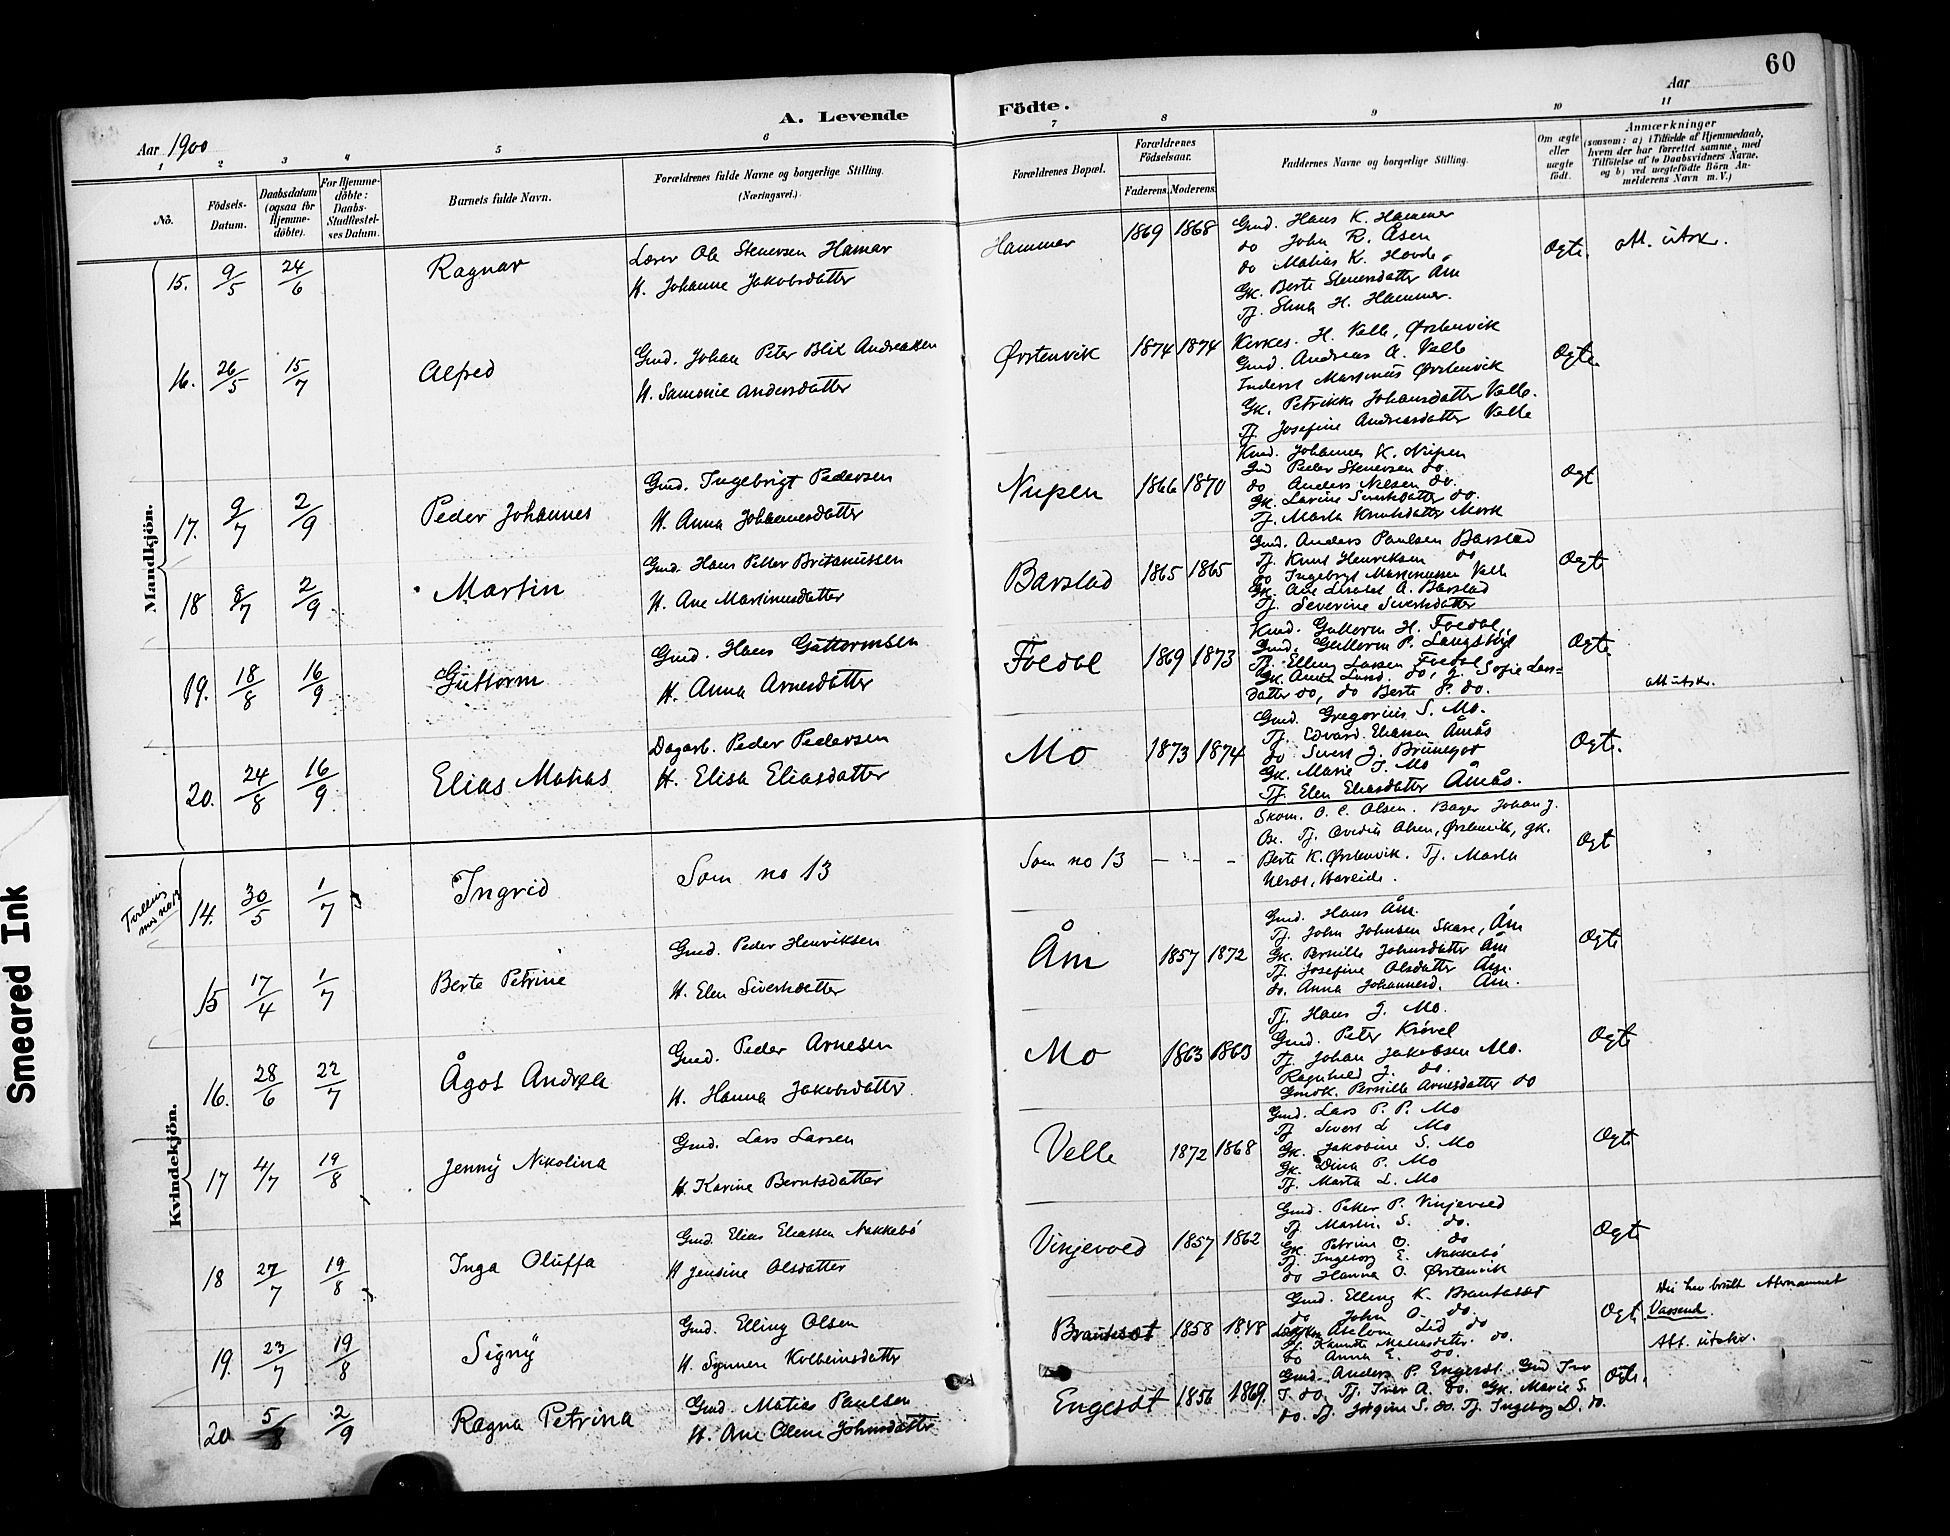 60
A. Levende Födte.
Aar 1900
Aar
1 2 3 4 5 6 7 8 9 10 11
No.
Födsels-Datum.
Daabsdatum (ogsaa for Hjemme-döbte).
For Hjemme-döbte: Daabs-Stadfæstel-ses Datum.
Barnets fulde Navn.
Forældrenes fulde Navne og borgerlige Stilling.
(Næringsvei.)
Forældrenes Bopæl.
Forældrenes Födselsaar.
Faderens. Moderens.
Faddernes Navne og borgerlige Stilling.
Om ægte eller uægte födt.
Anmærkninger
(saasom: a) i Tilfælde af Hjemmedaab,
hvem der har forrettet samme, med
Tilföielse af to Daabsvidners Navne,
og b) ved uægtefödte Börn An-
melderens Navn m. V.)
Mandkjön.
15. 9/5 24/6 Ragnar
Lærer Ole Stenersen Hamar
H. Johanne Jakobsdatter
Hammer 1869 1868
Gmd. Hans K. Hammer
do John R. Åsen
do Matias K. Hovde
Gk. Berte Stenersdatter Åm
Tj. Stina H. Hammer.
Ægte. att. utskr.
16. 26/5 15/7 Alfred
Gmd. Johan Peter Blix Andreassen
H. Samonie Andersdatter
Ørstenvik 1874 1874
Kirkes. H. Velle, Ørstenvik
Gmd. Andreas A. Velle
Inderst Martinus Ørstenvik
Gk. Petrikke Johansdatter Velle.
Tj Josefine Andreasdatter Velle
Ægte
17. 9/7 2/9 Peder Johannes
Gmd. Ingebrigt Pedersen
H. Anna Johannesdatter
Nupen 1866 1870
Kmd. Johannes K. Nupen
Gmd Peder Stenersen do.
do Anders Nilsen do.
Gk. Lavine Sivertsdatter do.
Tj. Marta Knutsdatter Mork
Ægt
18 8/7 2/9 Martin
Gmd. Hans Petter Britanussen
H. Ane Martinusdatter
Barstad 1865 1865
Gmd. Anders Paulsen Barstad
Tj. Knut Henriksen do
do Ingebrigt Martinussen Velle
Gk. Ane Lisabet A. Barstad
Tj. Severine Sivertsdatter
Ægte
19. 18/8 16/9 Guttorm
Gmd. Hans Guttormsen
H. Anna Arnesdatter
Foldal 1869 1873
Kmd. Guttorm H. Foldal,
Gmd. Guttorm P. Langskjl
Tj. Elling Larsen Foldal
Gk. Anna Larsd. do, g. Sofie Lars=
datter do, do Berte P. do.
Ægte. att utskr.
20. 24/8 16/9 Elias Matias
Dagarb. Peder Pedersen
H. Elisa Eliasdatter
Mo 1873 1874
Gmd. Gregorius S. Mo.
Tj. Edvard Eliassen Åmås
do Sivert J. Brunegot
Gk. Marie J. Mo
Tj. Elen Eliasdatter Åmås.
Ægte.
Kvindekjön.
Tvilling
med no 13
14. 30/5 1/7 Ingrid
Som no 13
Som no 13 - - -
Skom. O. C. Olsen. Bager Johan J.
Ose. Tj. Ovidia Olsen, Ørstenvik, gk.
Berte K. Ørstenvik. Tj. Marta
Ulrst, Hareide.
Ægt
15 17/4 1/7 Berte Petrine
Gmd. Peder Henriksen
H. Elen Sivertsdatter
Åm 1857 1872
Gmd. Hans Åm.
Tj. John Johnsen Skare, Åm
Gk. Pernille Johnsdatter Åm
Tj. Josefine Olsdatter Åm.
do. Anna Johannesd. Åm.
Ægte
16. 28/6 22/7 Ågot Andrea
Gmd. Peder Arnesen
H. Hanna Jakobsdatter.
Mo 1863 1863
Tj. Hans J. Mo.
Gmd. Peter Krøvel
Tj Johan Jakobsen Mo.
Ragnhild J. do.
Gmdk. Pernille Arnesdatter do
Ægte
17 4/7 19/8 Jenny Nikolina
Gmd. Lars Larsen
H. Karine Berntsdatter
Velle 1872 1868
Gmd. Lars P. P. Mo
Tj Sivert L Mo
Gk. Jakobine S. Mo
Gk. Dina P. Mo
Tj. Marta L. Mo
Ægte
18 27/7 19/8 Inga Oluffa
Gmd. Elias Eliassen Nakkebø
H Jensine Olsdatter
Vinjevold 1857 1862
Gmd. Petter P. Vinjevold
Tj Martin S. do.
Gk. Petrine O. do
Tj. Ingeborg E. Nakkebø
do Hanna O. Ørstenvik
Ægte
19. 23/7 19/8 Signy
Gmd. Elling Olsen
H. Synnøve Kolbeinsdatter
Brautaset 1858 1848
Gmd. Elling K. Brautaset
do John O. do.
Aslom Lid do
Tj Kanutte Matiasdatter do.
do Anna E. do.
Ægt.
Vassend.
Att. utskr.
20 5/8 2/9 Ragna Petrina
Gmd. Matias Paulsen
H. Ane Oline Johnsdatter
Engeset 1856 1869.
Gmd. Anders P. Engeset. Gmd Iver
I. do. Tj. Iver A. do. Gk. Marie S.
do. Tj. Jørgine S. do. Tj. Ingeborg D. do.
Ægte.
Smeared Ink